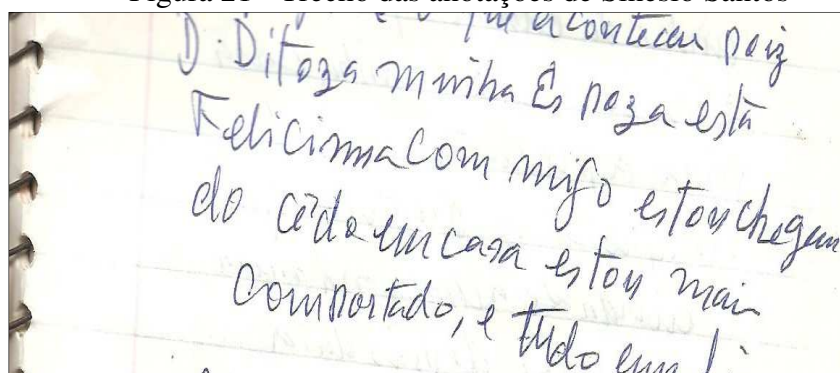 Figura 21 – Trecho das anotações de Sinésio Santos
que aconteceu poiz
D. Ditoza minha Espoza está
Felicima Com migo estou chegan
do cêdo em casa estou mais
Comportado, e tudo em